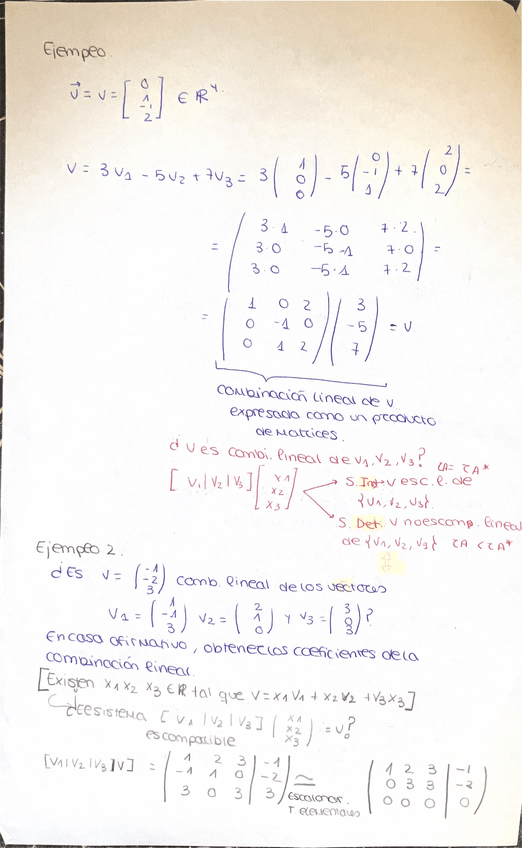 Ejemplo.
v⃗ = v = [0 1 -1 2] ∈ ℝ⁴.
v = 3v1 - 5v2 + 7v3 = 3(1 0 0) - 5(0 -1 1) + 7(2 0 2) =
= (3·1 -5·0 7·2.
3·0 -5·-1 7·0
3·0 -5·1 7·2) =
= (1 0 2
0 -1 0
0 1 2)(3 -5 7) = v.
combinación lineal de v
expresada como un producto
de matrices.
¿v es combi. lineal de v1, v2, v3? rA = rA*
[v1 | v2 | v3] [x1 x2 x3] → S. Ind → v es c. l. de
{v1, v2, v3}.
S. Det. v no es comp. lineal
de {v1, v2, v3} rA < rA*
Ejemplo 2.
¿Es v = (-1 -2 3) comb. lineal de los vectores
v1 = (1 -1 3) v2 = (2 1 0) y v3 = (3 0 3)?
En caso afirmativo, obtener los coeficientes de la
combinación lineal.
[Existen x1 x2 x3 ∈ ℝ tal que v = x1v1 + x2v2 + v3x3]
¿el sistema [v1 | v2 | v3] (x1 x2 x3) = v?
es compatible
[v1|v2|v3|v] = (1 2 3 | -1
-1 1 0 | -2
3 0 3 | 3) ≃ (1 2 3 | -1
0 3 3 | -2
0 0 0 | 0)
escalonar.
T. elementales